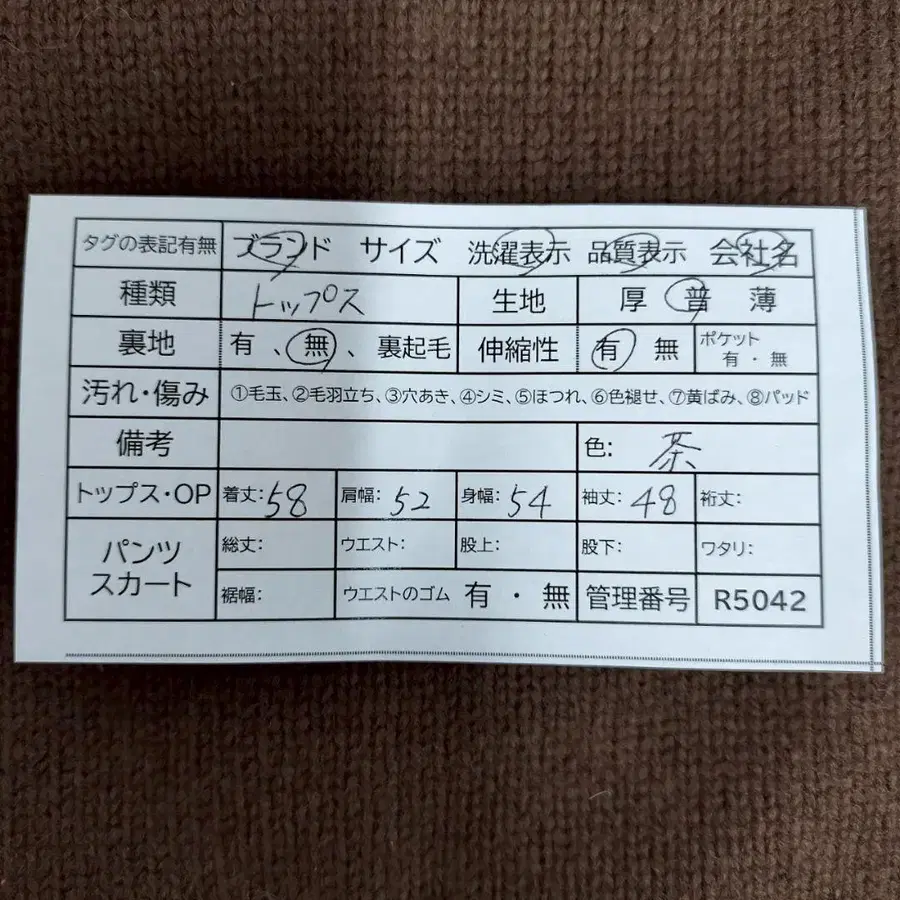 タグの表記有無 ブランド サイズ 洗濯表示 品質表示 会社名
種類 トップス 生地 厚 普 薄
裏地 有 、無、裏起毛 伸縮性 有 無 ポケット
有・無
汚れ・傷み ①毛玉、②毛羽立ち、③穴あき、④シミ、⑤ほつれ、⑥色褪せ、⑦黄ばみ、⑧パッド
備考 色: 茶
トップス・OP 着丈:58 肩幅:52 身幅:54 袖丈:48 裄丈:
パンツ
スカート
総丈: ウエスト: 股上: 股下: ワタリ:
裾幅: ウエストのゴム 有・無 管理番号 R5042